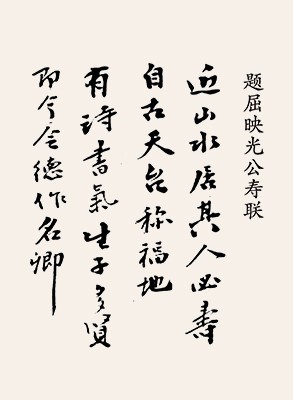 题屈映光公寿联
近山水居其人必寿
自古天台称福地
有诗書氣生子多賢
即今令德作名卿